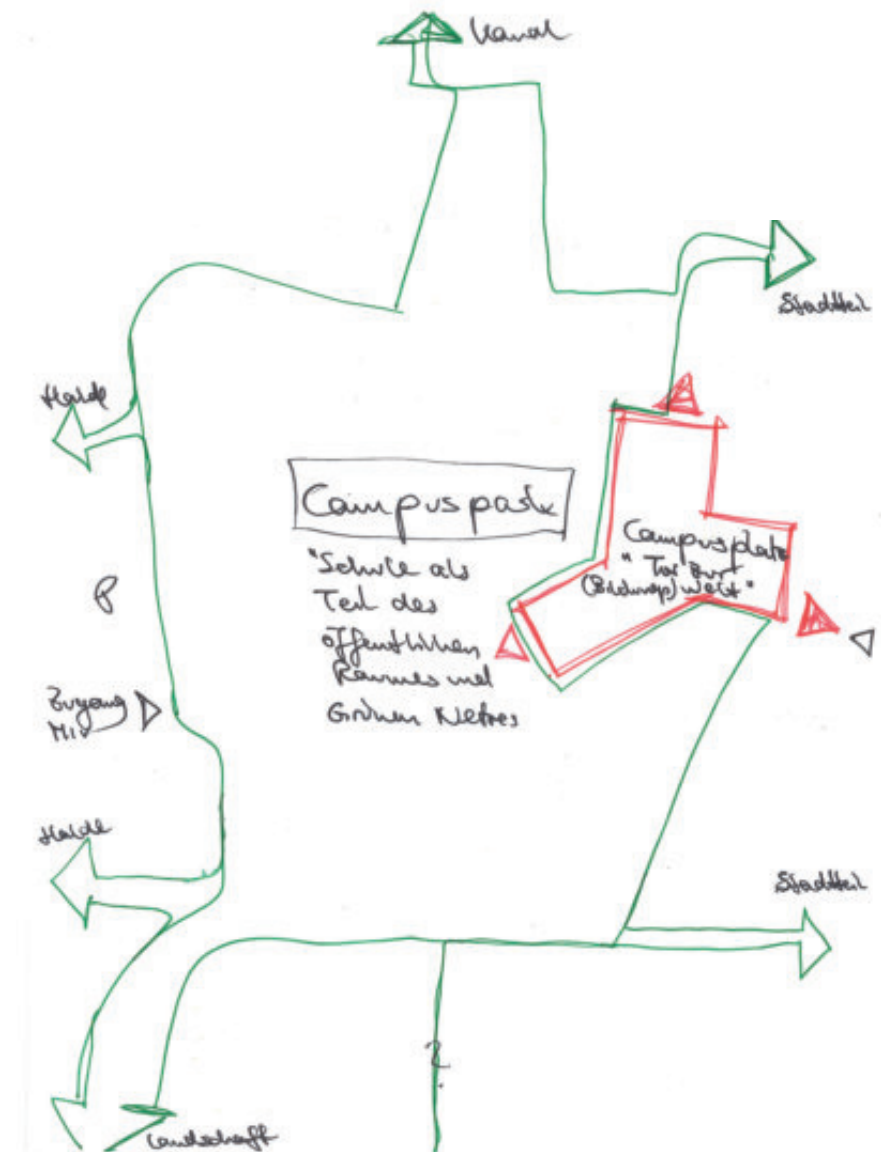 Kanal
Stadtteil
Halde
Campuspark
"Schule als
Teil des
öffentlichen
Raumes und
Grünen Netzes
Campusplatz
"Tor zur
(Bildungs) Welt"
P
Zugang
MIV
Halde
Stadtteil
?
Landschaft